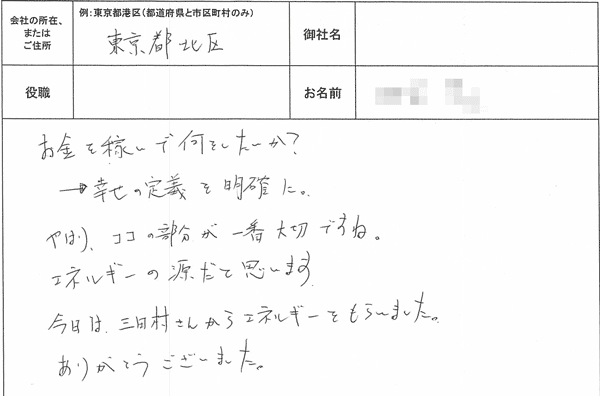 会社の所在、
または
ご住所
例：東京都港区（都道府県と市区町村のみ）
東京都北区
御社名
役職
お名前
お金を稼いで何をしたいか？
→幸せの定義を明確に。
やはり、ココの部分が一番大切ですね。
エネルギーの源だと思います
今日は、三田村さんからエネルギーをもらいました。
ありがとうございました。